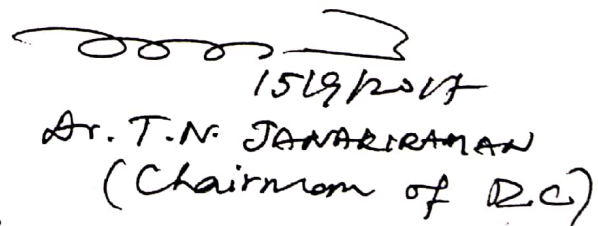 15/9/2017
Dr. T.N. JANAKIRAMAN
(Chairman of D.C)